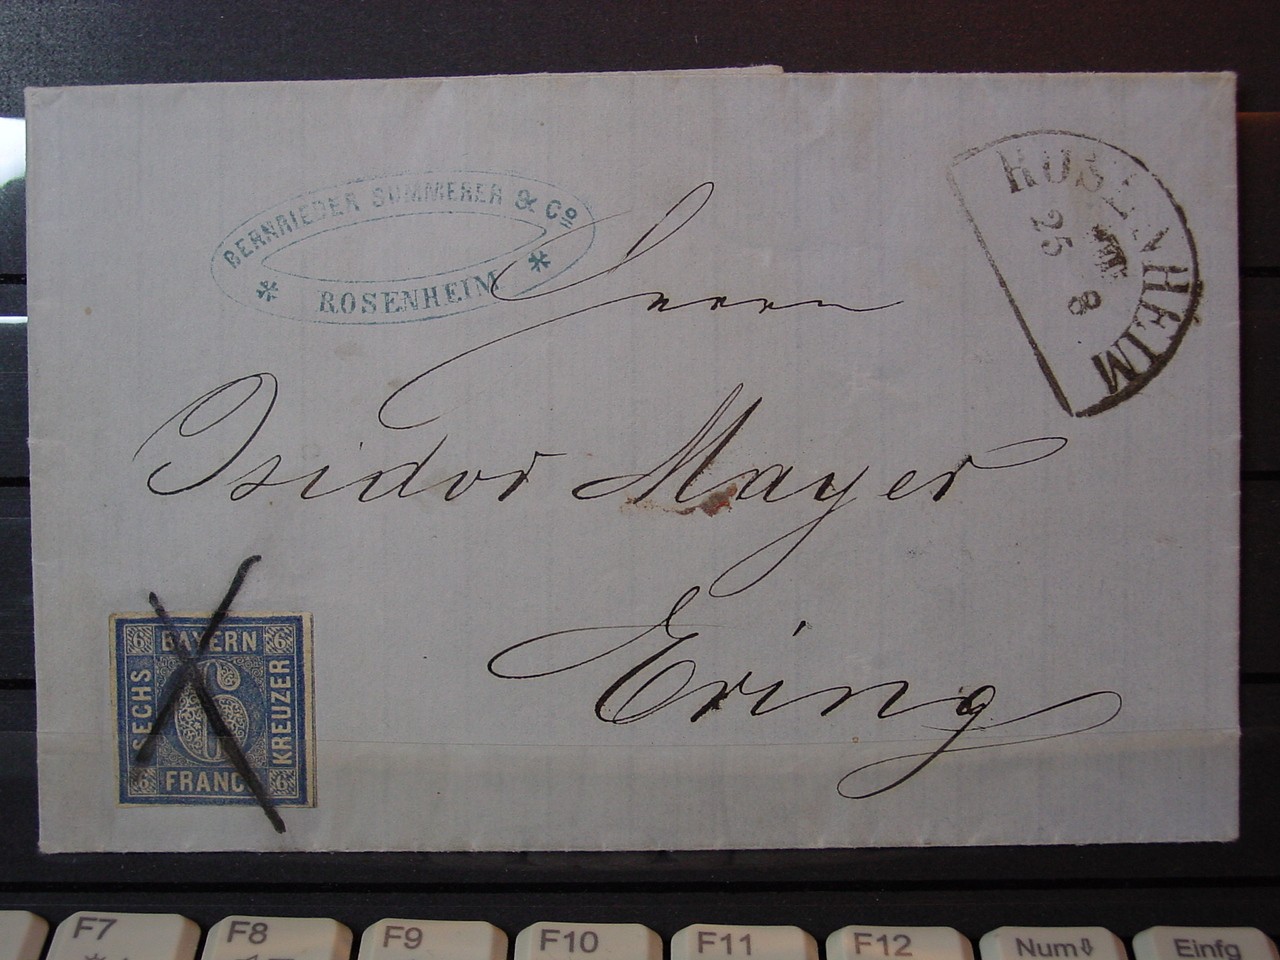 BERNRIEDER SUMMERER & Co
* ROSENHEIM *
ROSENHEIM
25
8
Herrn
Isidor Mayer
Ering
6 BAYERN 6
SECHS
6
KREUZER
6 FRANCO 6
F7
F8
F9
F10
F11
F12
Num⇩
Einfg